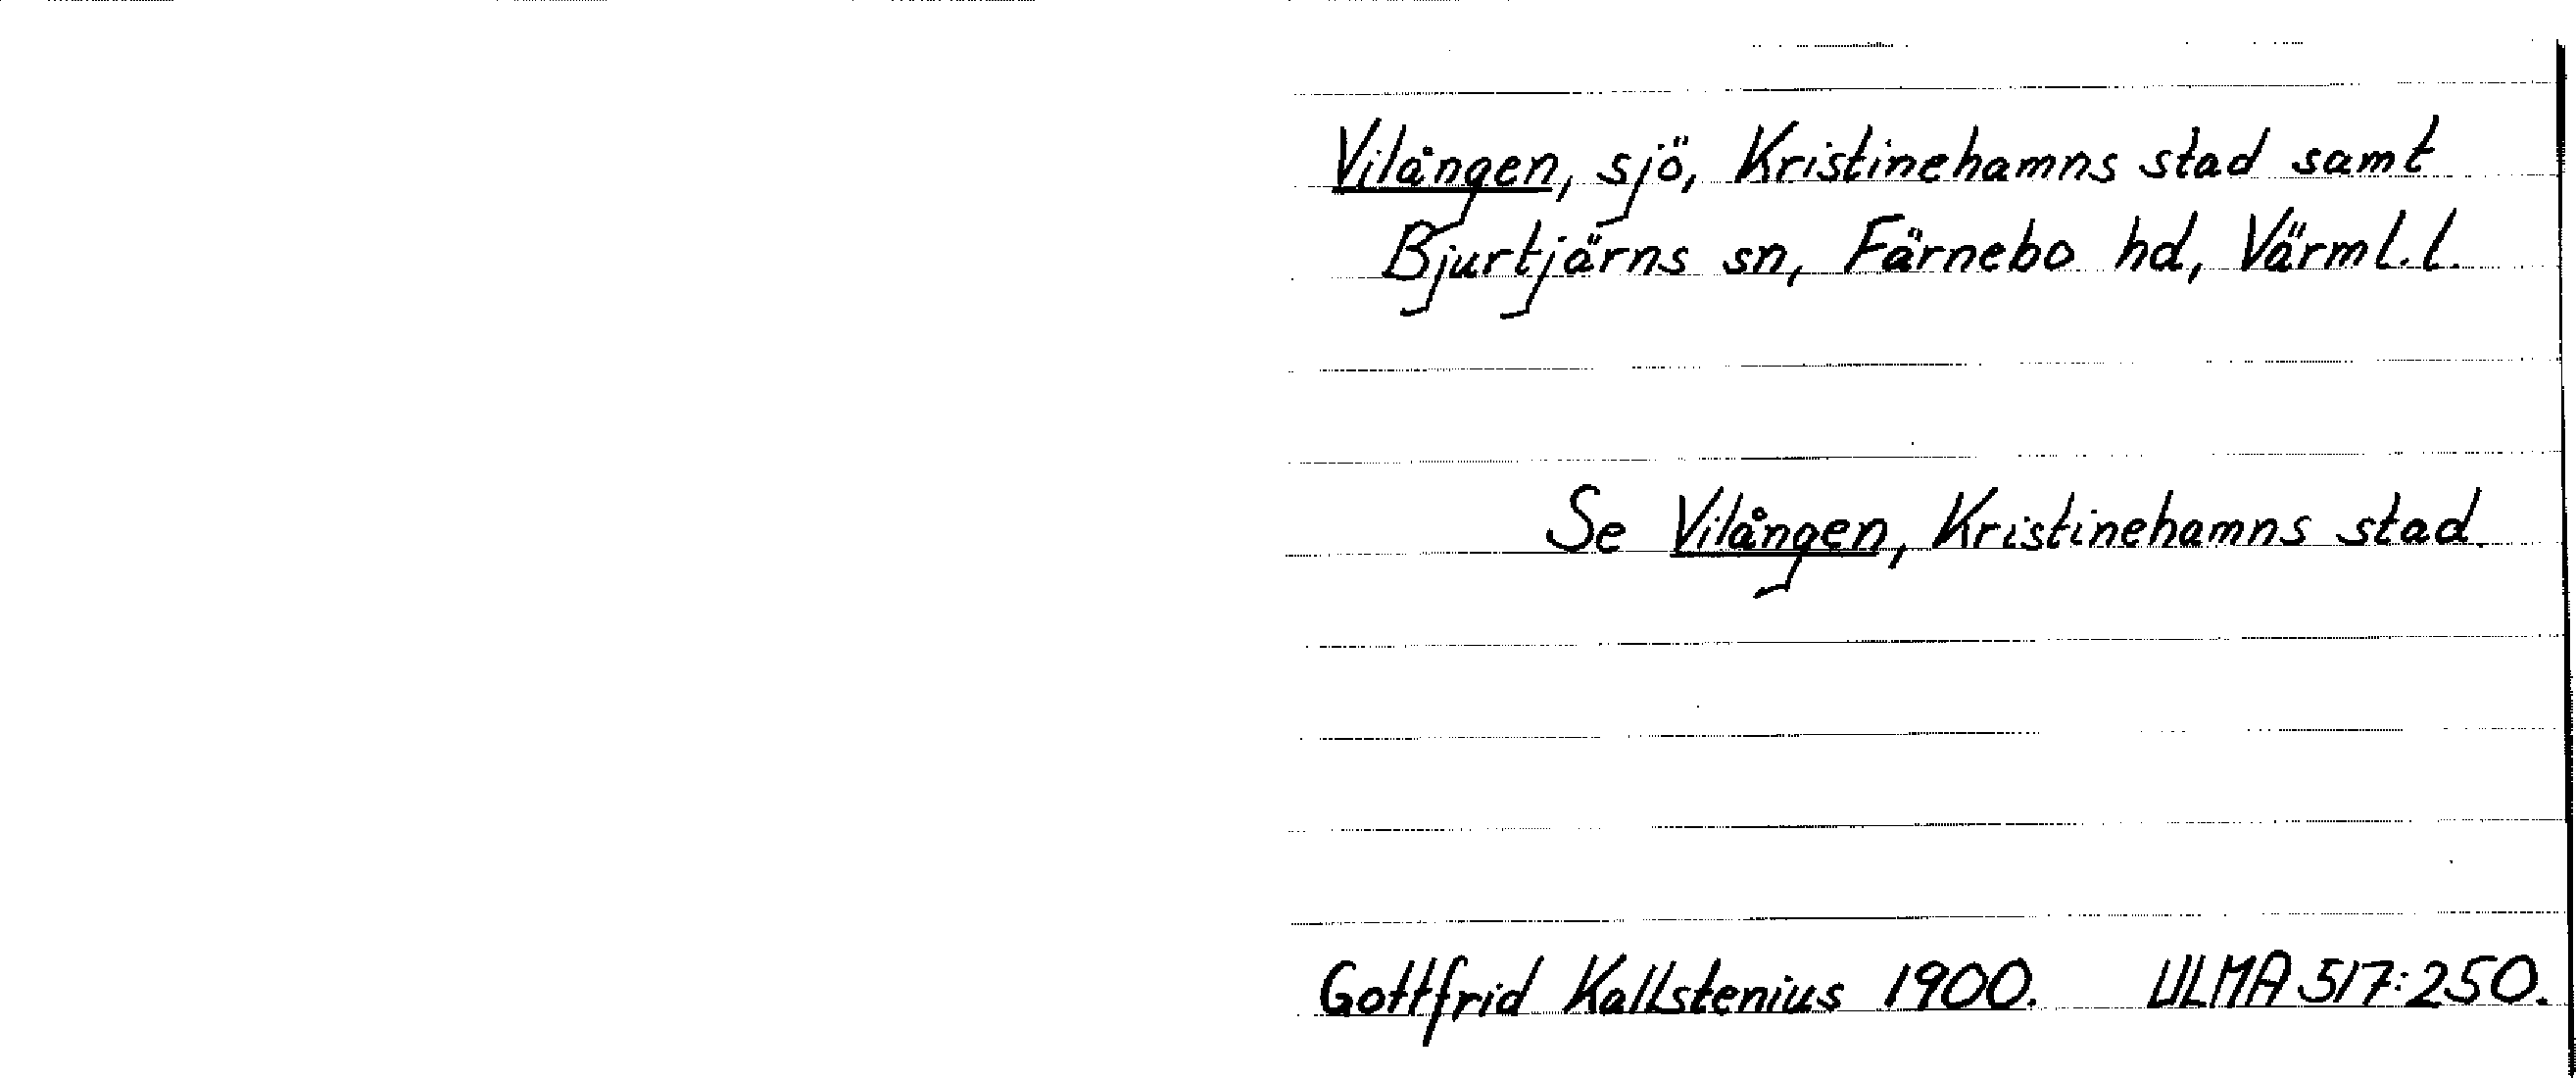 Vilången, sjö, Kristinehamns stad samt
Bjurtjärns sn, Färnebo hd, Värml.l.
Se Vilången, Kristinehamns stad.
Gottfrid Kallstenius 1900. ULMA 517:250.